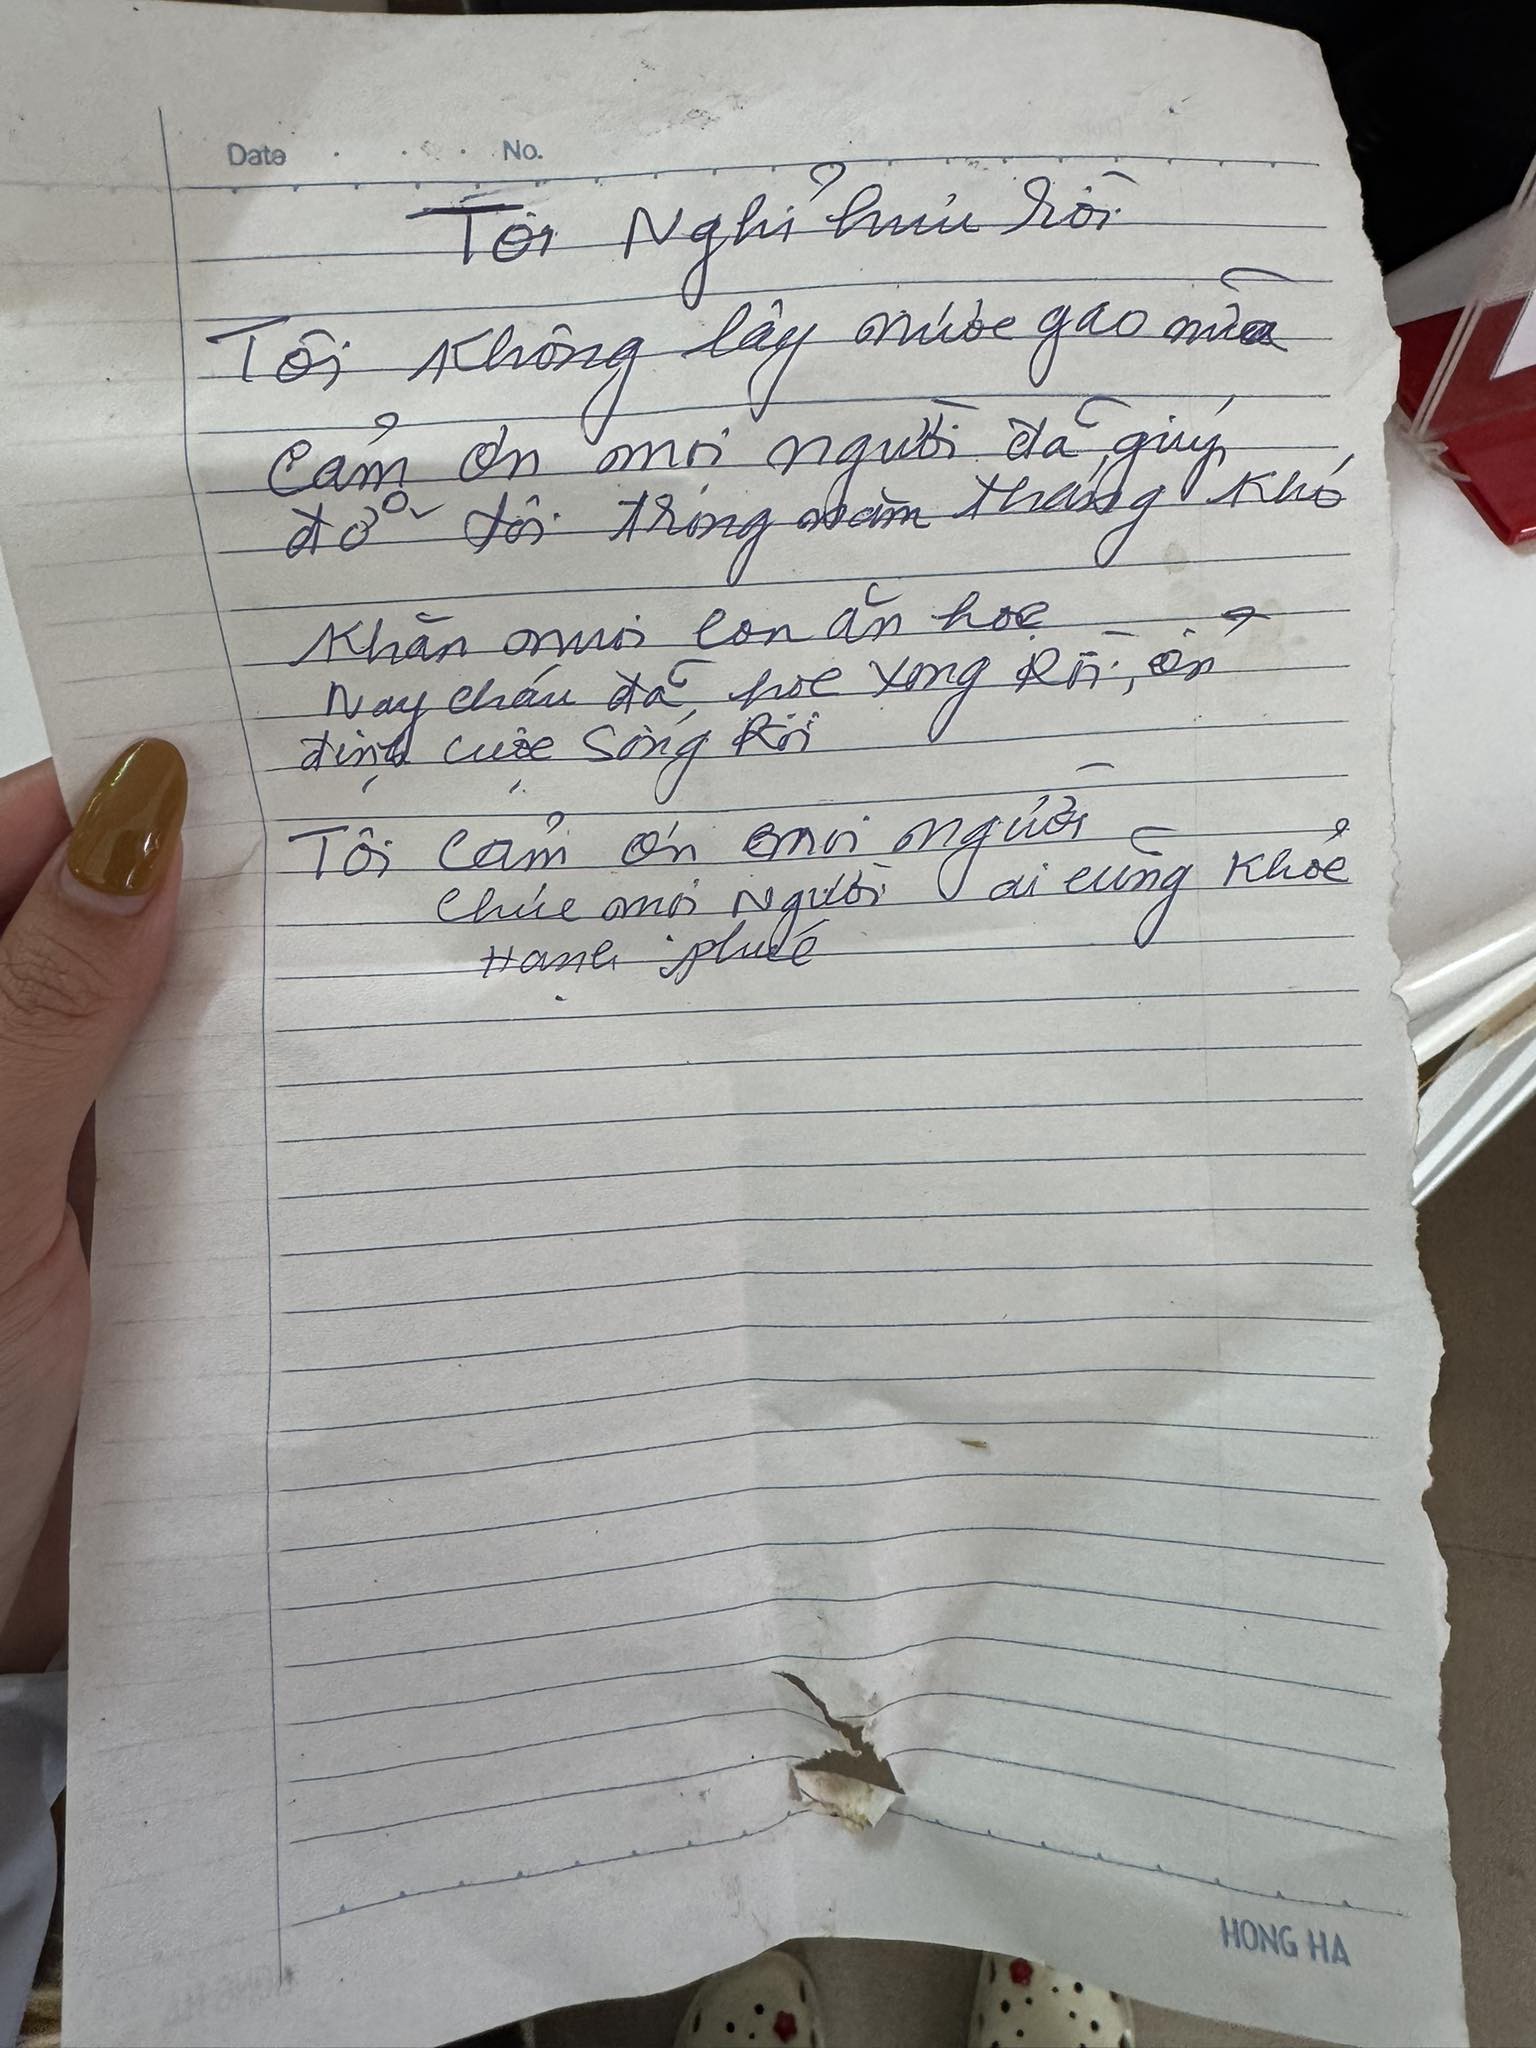 Date No.
Tôi Nghỉ hưu rồi
Tôi Không lấy nước gạo nữa
Cảm ơn mọi người đã giúp
đỡ tôi trong năm tháng khó
Khăn nuôi con ăn học
Nay cháu đã học xong Rồi, ổn
định cuộc Sống Rồi
Tôi cảm ơn mọi người
Chúc mọi Người ai cũng Khỏe
Hạnh phúc
HONG HA